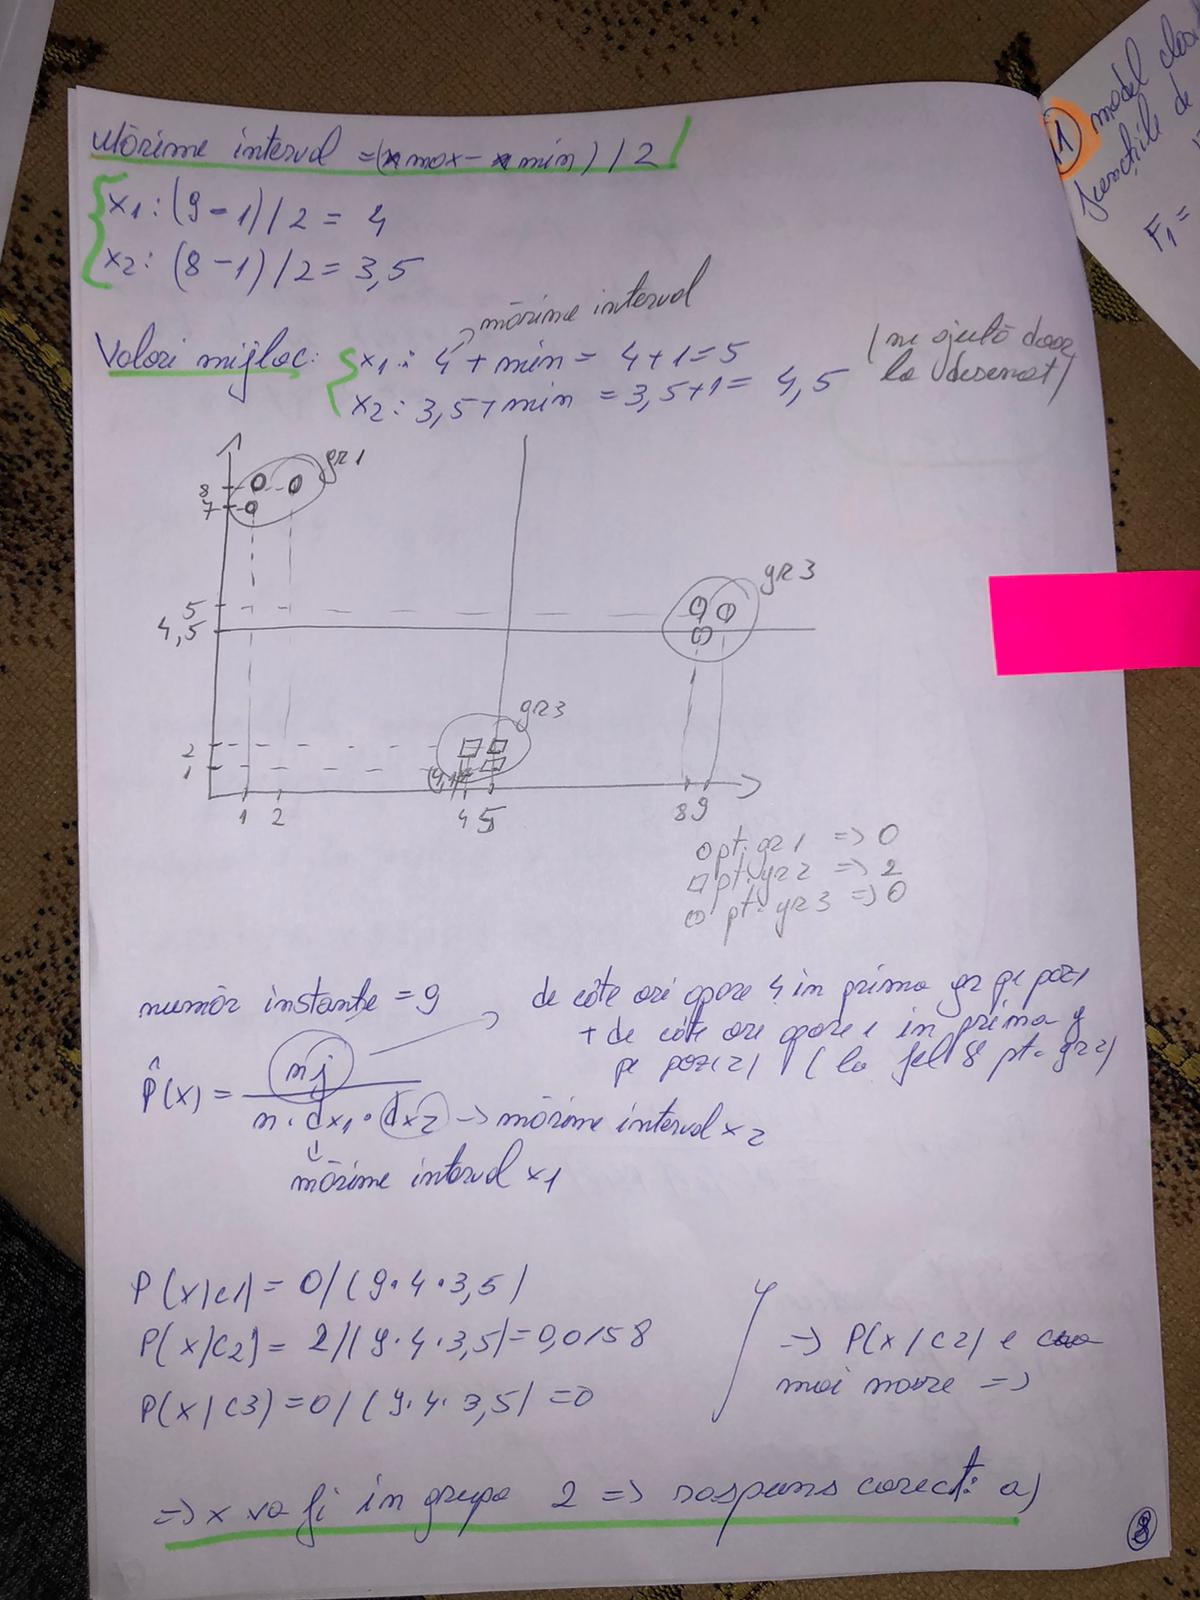 Mărime interval = (x max - x min) / 2
x1 : (9 - 1) / 2 = 4
x2 : (8 - 1) / 2 = 3,5
mărime interval
Valori mijloc: x1 : 4 + min = 4+1 = 5
x2 : 3,5 + min = 3,5+1 = 4,5
(ne ajută doar
la desenat)
gr1
8
7
gr 3
5
4,5
gr3
2
1
1 2 4 5 8 9
pt. gr 1 => 0
pt. gr 2 => 2
pt. gr 3 => 0
număr instanțe = 9
de câte ori apare 4 in prima gr pe poz1
+ de câte ori apare 1 in prima g
pe poz(2) (la fel & pt. gr 2)
P̂(x) = nj
n · dx1 · dx2 -> mărime interval x2
mărime interval x1
P(x|c1) = 0 / (9·4·3,5)
P(x|C2) = 2 / (9·4·3,5) = 0,0158
P(x|C3) = 0 / (9·4·3,5) = 0
=> P(x|C2) e cea
mai mare =>
=> x va fi in grupa 2 => răspuns corect: a)
8
1 model
funcțiile de
F1 =